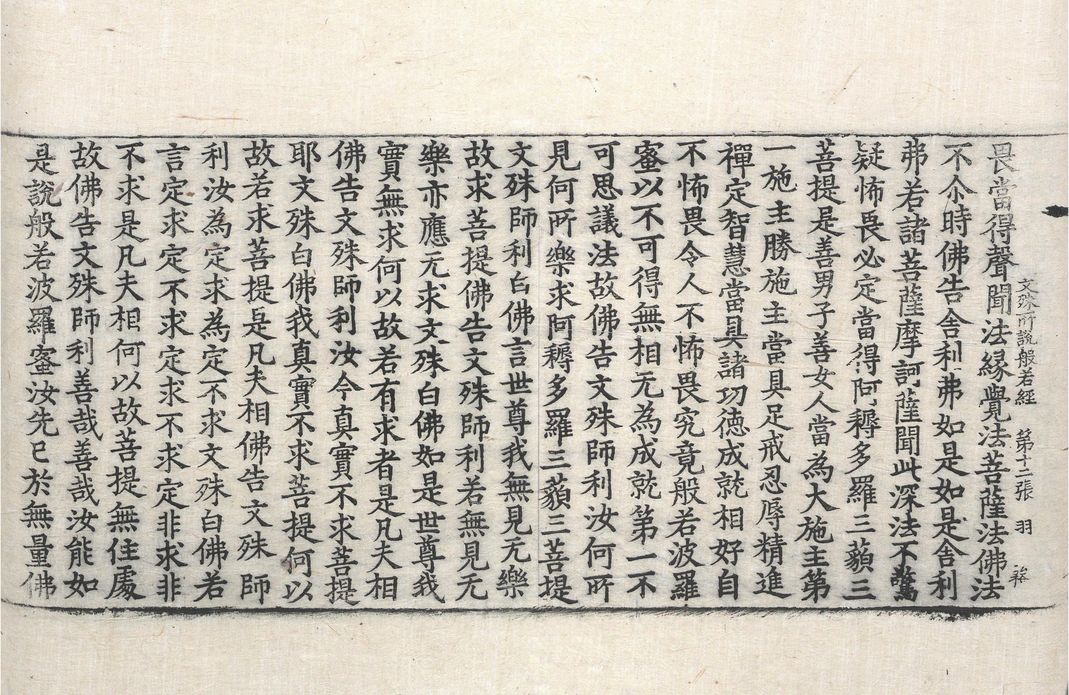 文殊所說般若經 第十二張 羽
畏當得聲聞法緣覺法菩薩法佛法
不尒時佛告舍利弗如是如是舍利
弗若諸菩薩摩訶薩聞此深法不驚
疑怖畏必定當得阿耨多羅三藐三
菩提是善男子善女人當為大施主第
一施主勝施主當具足戒忍辱精進
禪定智慧當具諸功德成就相好自
不怖畏令人不怖畏究竟般若波羅
蜜以不可得無相无為成就第一不
可思議法故佛告文殊師利汝何所
見何所樂求阿耨多羅三藐三菩提
文殊師利白佛言世尊我無見无樂
故求菩提佛告文殊師利若無見无
樂亦應无求文殊白佛如是世尊我
實無求何以故若有求者是凡夫相
佛告文殊師利汝今真實不求菩提
耶文殊白佛我真實不求菩提何以
故若求菩提是凡夫相佛告文殊師
利汝為定求為定不求文殊白佛若
言定求定不求定求不求定非求非
不求是凡夫相何以故菩提無住處
故佛告文殊師利善哉善哉汝能如
是說般若波羅蜜汝先已於無量佛